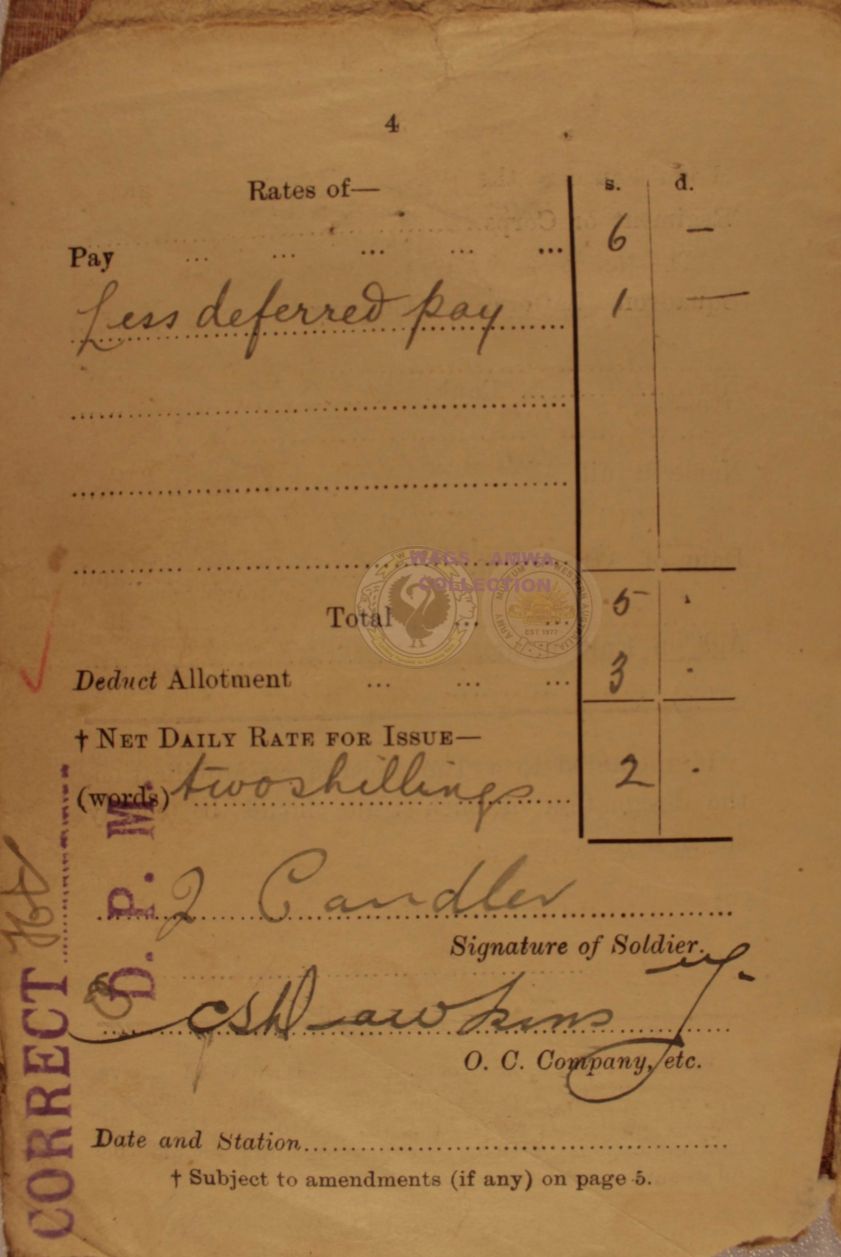 4
Rates of— s. d.
Pay ... ... ... ... ... 6 —
Less deferred pay 1 —
WAGS - AMWA
COLLECTION
ARMY MUSEUM OF WESTERN AUSTRALIA
EST 1977
Total ... ... 5 .
Deduct Allotment ... ... ... 3 .
† NET DAILY RATE FOR ISSUE—
(words) two shillings 2 .
J Candler
Signature of Soldier.
CSHawkins
O. C. Company, etc.
Date and Station
† Subject to amendments (if any) on page 5.
CORRECT
D. P. M.